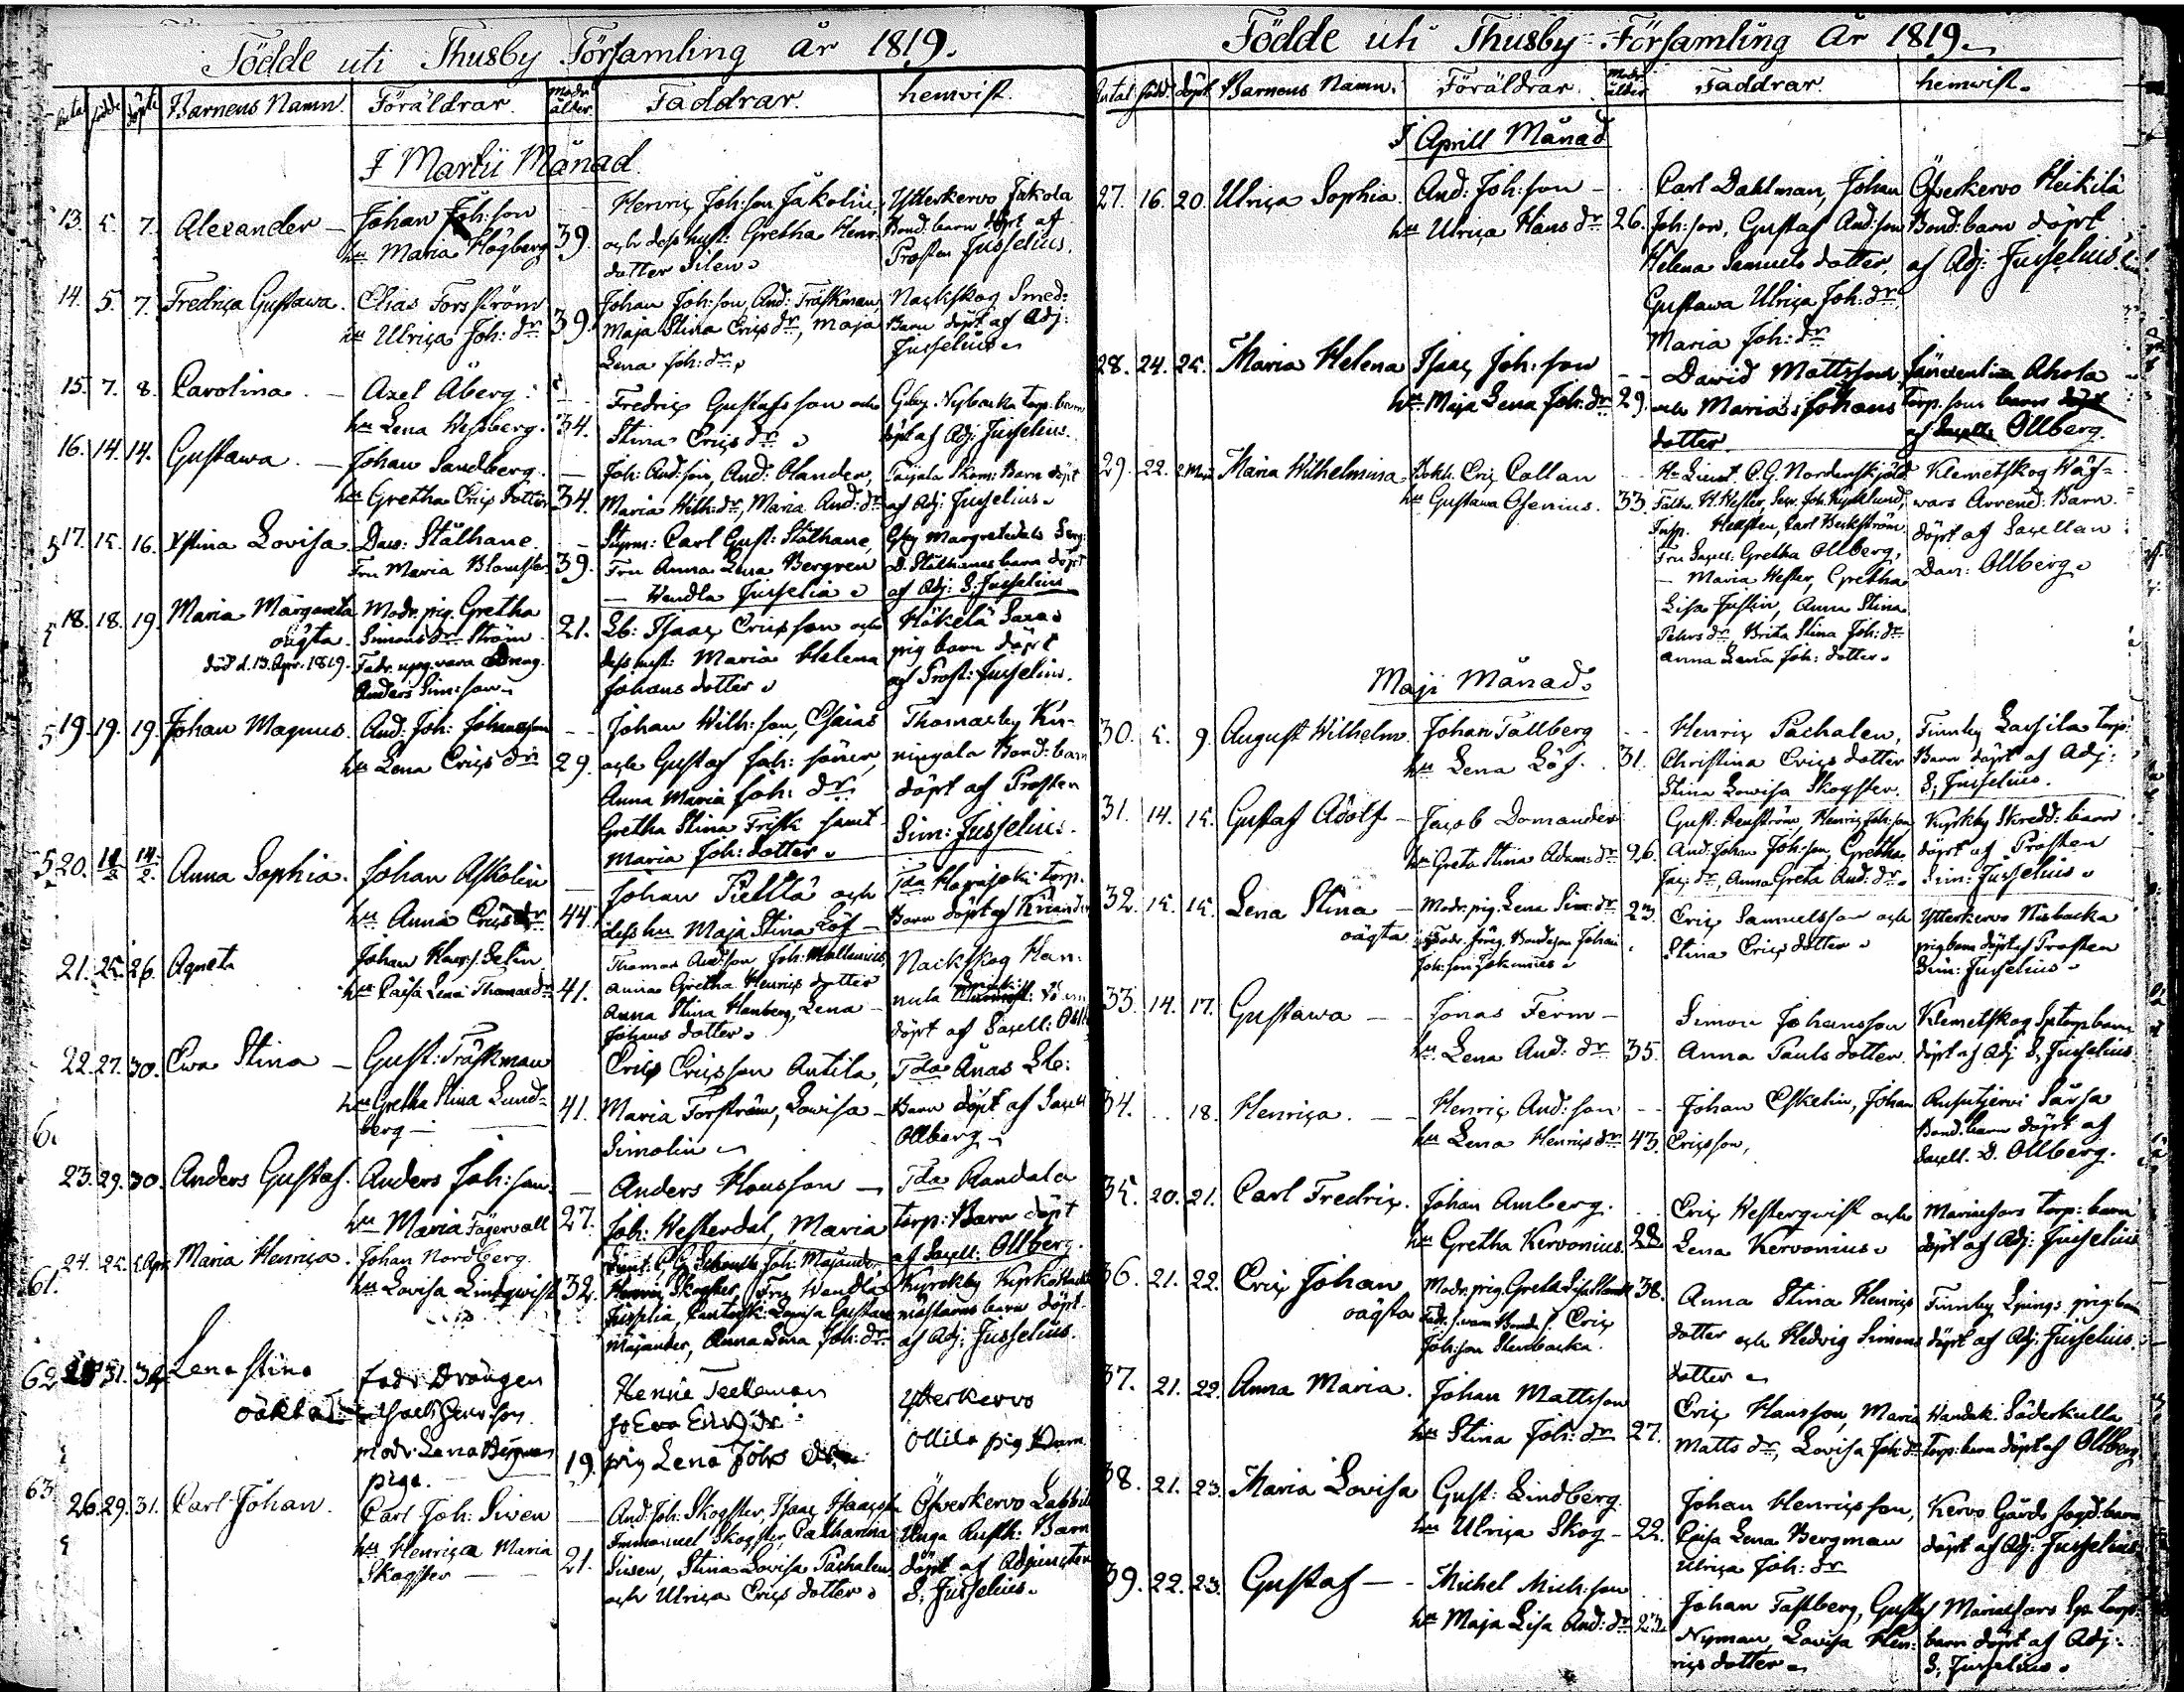 Födde uti Thusby Församling år 1819.
Födde döpte Barnens Namn. Föräldrar. Modr. ålder. Faddrar. hemvist.
I Martii Månad.
13. 5. 7. Alexander — Johan Joh:son
hu Maria Högberg 39.
Henric Joh:son Jakolin,
och dess hust: Gretha Henr:
dotter Silen.
Ytterkervo Jakola
Bond. barn döpt af
Prosten Jusselius.
14. 5. 7. Fredrica Gustawa. Elias Forsström
hu Ulrica Joh: dr 39.
Johan Joh:son, And: Träskman,
Maja Stina Erics dr, Maja
Lena Joh: dr.
Nackskog Smed:
Barn döpt af Adj:
Jusselius.
15. 7. 8. Carolina. — Axel Åberg.
hu Lena Wessberg. 34.
Fredric Gustafsson och
Stina Erics dr.
Nybacka torp. barn
döpt af Adj: Jusselius.
16. 14. 14. Gustawa. — Johan Sandberg.
hu Gretha Erics dotter 34.
Joh: And:son, And: Olander,
Maria Wilh: dr, Maria And: dr
Skom: Barn döpt
af Adj: Jusselius.
17. 15. 16. Xstina Lovisa. Dav: Stålhane.
Fru Maria Blomster 39.
Styrm: Carl Gust: Stålhane,
Fru Anna Lena Bergren
— Wendla Jusselia.
Margretedals Serg:
D. Stålhanes barn döpt
af Adj: S: Jusselius
18. 18. 19. Maria Margareta
oägta.
död d. 13. Apr. 1819.
Modr. pig. Gretha
Simons dr Ström 21.
Fadr. uppg. vara dreng.
Anders Sim:son.
Lb: Isaac Ericsson och
dess hust: Maria Helena
Johans dotter.
Hökelä Saxa
pig barn döpt
af Prost: Jusselius.
19. 19. 19. Johan Magnus. And: Joh: Johansson
hu Lena Erics dr 29.
Johan Wilh:son, Esaias
och Gustaf Joh: söner,
Anna Maria Joh: dr
Gretha Stina Frisk samt
Maria Joh: dotter.
Thomasby Ku-
ningala Bond: barn
döpt af Prosten
Sim: Jusselius.
20. 14/2 14/2. Anna Sophia. Johan Askolin
hu Anna Erics dr 44.
Johan Pietilä och
dess hu Maja Stina Löf —
Tda torp.
Barn döpt af
21. 25. 26. Agneta Johan Selin
hu Caisa Lena Thomas dr 41.
Thomas And:son Joh: Mallenius,
Anna Gretha Henrics dotter
Anna Stina Hanberg, Lena
Johans dotter.
Nackskog Han-
nula
döpt af Sacell: Ollb
22. 27. 30. Ewa Stina — Gust: Träskman
hu Gretha Stina Lund-
berg — 41.
Eric Ericsson Antila,
Maria Forström, Lovisa —
Simolin
Tda Ånas Lb:
Barn döpt af Sacell
Ollberg
23. 29. 30. Anders Gustaf. Anders Joh:son.
hu Maria Fagervall 27.
Anders Hansson —
Joh: Westerdal, Maria
Tda Randala
torp: Barn döpt
af Sacell: Ollberg.
24. 25. 1 Apr. Maria Henrica. Johan Nordberg.
hu Lovisa Lindqwist 32.
Joh: Majander
Skogster, Fru Wendla
Jusselia, Lovisa Gustava
Majander, Anna Lena Joh: dr
Kyrckby
mästarens barn döpt.
af Adj: Jusselius.
31. Lena Stina
oäkta
fadr Drängen
son
modr: Lena Bergman
piga. 19.
Henric Teckeman
Eva Erics dr
pig Lena Johs dr
Ytterkervo
Ollila pig Barn
26. 29. 31. Carl Johan. Carl Joh: Siven
hu Henrica Maria
Skogster 21.
And: Joh: Skogster, Isaac Isaacsson
Immanuel Skogster, Catharina
Siven, Stina Lovisa Pachalen
och Ulrica Erics dotter.
Öfverkervo
Rusth: Barn
döpt af Adjuncten
S: Jusselius.
Födde uti Thusby Församling År 1819.
Antal. född. döpt. Barnens Namn. Föräldrar. Modr. ålder Faddrar. hemvist.
I Aprill Månad
27. 16. 20. Ulrica Sophia. And: Joh:son —
hu Ulrica Hans dr 26.
Carl Dahlman, Johan
Joh:son, Gustaf And:son
Helena Samuels dotter,
Gustawa Ulrica Joh: dr
Maria Joh: dr
Öfverkervo Heikilä
Bond: barn döpt
af Adj: Jusselius.
28. 24. 25. Maria Helena Isaac Joh:son
hu Maja Lena Joh: dr 29.
David Mattsson
och Maria Johans
dotter.
Ahola
Torp. sons barn döpt
af Sacell: Ollberg.
29. 22. 2 Maji Maria Wilhelmina. Bokh. Eric Callan
hu Gustawa Osenius. 33.
Hr Lieut. C. G. Nordenskjöld
Insp. Hellsten, Carl Beckström
Fru Sacell: Gretha Ollberg,
— Maria Wester, Gretha
Lisa Justin, Anna Stina
Pehrs dr, Brita Stina Joh: dr
Anna Lena Joh: dotter.
Klemetskog Wäf-
wars Arrend: Barn.
döpt af Sacellan
Dav: Ollberg.
Maji Månad.
30. 5. 9. August Wilhelm. Johan Tallberg
hu Lena Löf. 31.
Henric Pachalen,
Christina Erics dotter
Stina Lowisa Skogster.
Finnby Lassila torp:
Barn döpt af Adj:
S: Jusselius.
31. 14. 15. Gustaf Adolf — Jacob Domander
hu Greta Stina Adam: dr 26.
Gust: Henric Joh:son
And: Johan Joh:son, Gretha
Jac: dr, Anna Greta And: dr.
Kyrkby Skredd: barn
döpt af Prosten
Sim: Jusselius.
32. 15. 15. Lena Stina —
oägta
Modr. pig. Lena Sim: dr 23.
Bondeson Johan
Joh:son
Eric Samuelsson och
Stina Erics dotter.
Ytterkervo Nisbacka
pig barn döpt af Prosten
Sim: Jusselius.
33. 14. 17. Gustawa — Jonas Ferm —
hu Lena And: dr 35.
Simon Johansson
Anna Pauls dotter.
Klemetskog barn
döpt af Adj S: Jusselius
34. 18. Henrica. — Henric And:son
hu Lena Henrics dr 43.
Johan Eskelin, Johan
Ericsson,
Rusutjervi Särsa
Bond. barn döpt af
Sacell. D. Ollberg.
35. 20. 21. Carl Fredric. Johan Amberg.
hu Gretha Kervonius. 28.
Eric Westerqvist och
Lena Kervonius.
Mariefors torp: barn
döpt af Adj: Jusselius
36. 21. 22. Eric Johan
oägta
Modr. pig. Greta Lisa 38.
Eric
Joh:son Stenbacka.
Anna Stina Henrics
dotter och Hedvig Simons
dotter
Finnby pig barn
döpt af Adj: Jusselius.
37. 21. 22. Anna Maria. Johan Mattsson
hu Stina Joh: dr 27.
Eric Hansson, Maria
Matts dr, Lovisa Joh: dr
Wandak. Söderkulla
torp: barn döpt af Ollberg
38. 21. 23. Maria Lovisa Gust: Lindberg.
hu Ulrica Skog — 22.
Johan Henricsson,
Caisa Lena Bergman
Ulrica Joh: dr
Kervo Gårds fogd. barn
döpt af Adj: Jusselius
39. 22. 23. Gustaf — Michel Mich:son
hu Maja Lisa And: dr 23.
Johan Tastberg, Gustaf
Nyman, Lovisa Hen-
rics dotter
Mariefors torp:
barn döpt af Adj:
S: Jusselius.